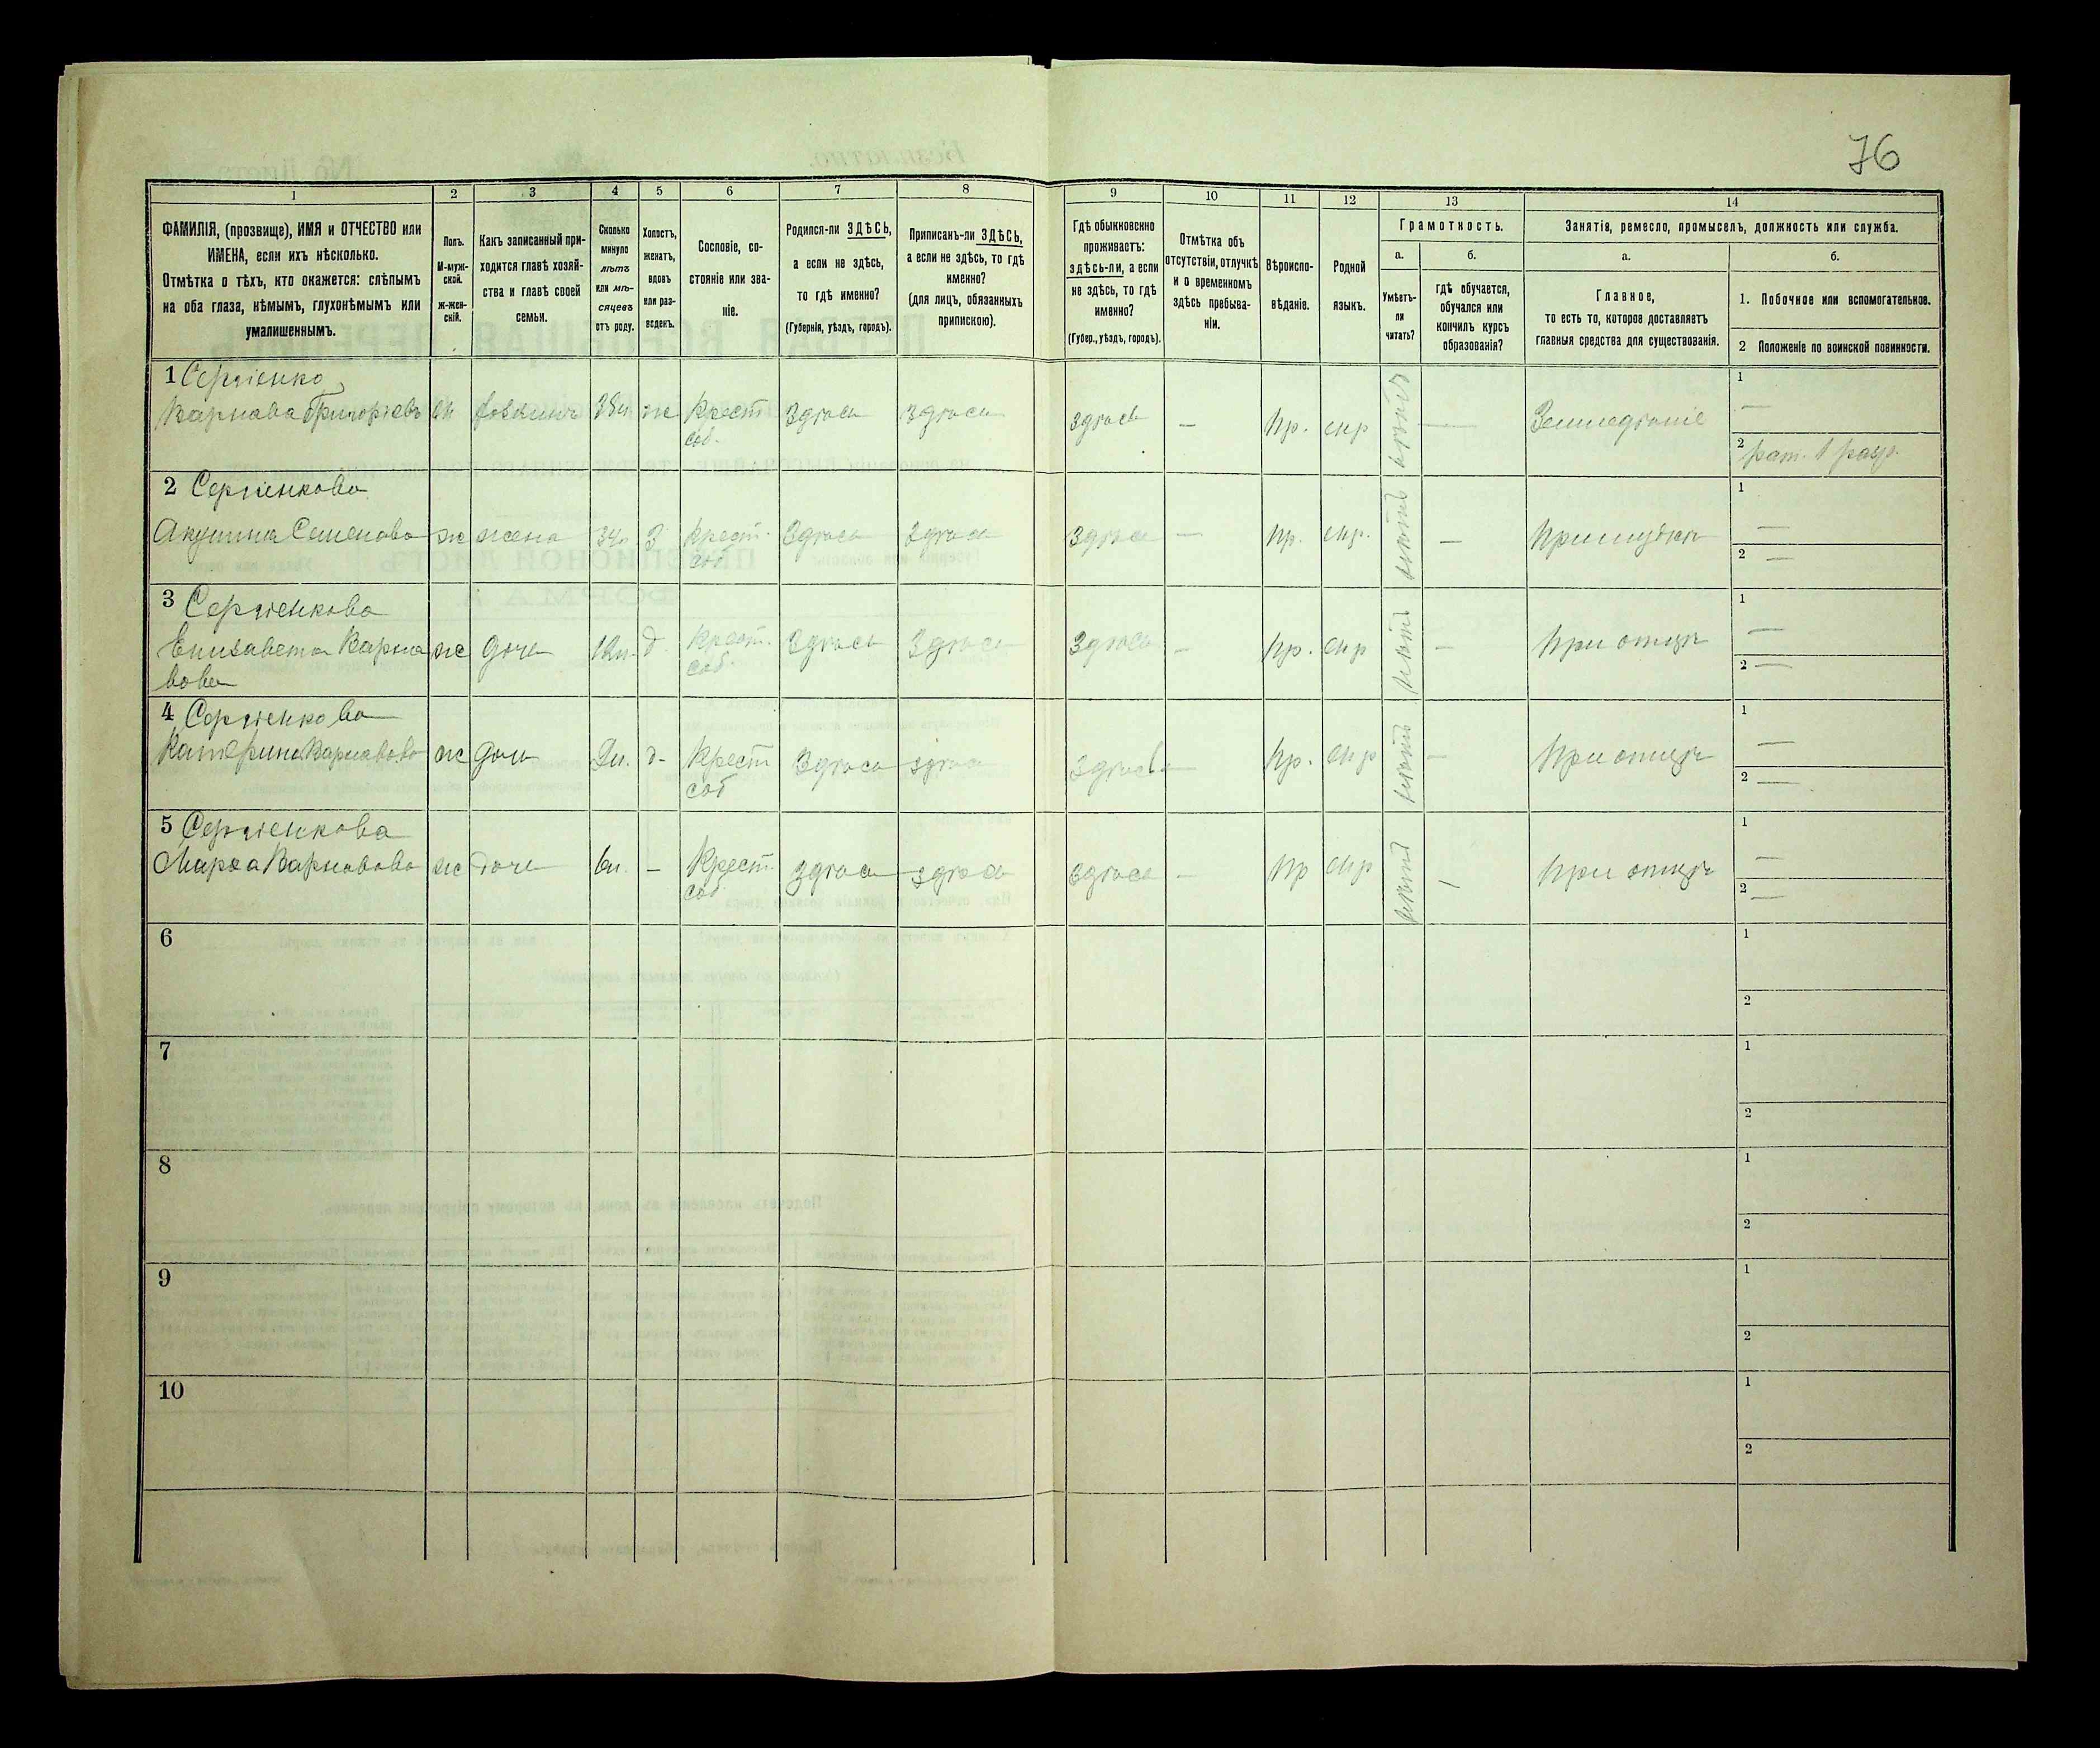 76
1
2
3
4
5
6
7
8
9
10
11
12
13
14
ФАМИЛІЯ, (прозвище), ИМЯ и ОТЧЕСТВО или
ИМЕНА, если ихъ нѣсколько.
Отмѣтка о тѣхъ, кто окажется: слѣпымъ
на оба глаза, нѣмымъ, глухонѣмымъ или
умалишеннымъ.
Полъ.
М-муж-
ской.
Ж-жен-
скій.
Какъ записанный при-
ходится главѣ хозяй-
ства и главѣ своей
семьи.
Сколько
минуло
лѣтъ
или мѣ-
сяцевъ
отъ роду.
Холостъ,
женатъ,
вдовъ
или раз-
веденъ.
Сословіе, со-
стояніе или зва-
ніе.
Родился-ли ЗДѢСЬ,
а если не здѣсь,
то гдѣ именно?
(Губернія, уѣздъ, городъ).
Приписанъ-ли ЗДѢСЬ,
а если не здѣсь, то гдѣ
именно?
(для лицъ, обязанныхъ
припискою).
Гдѣ обыкновенно
проживаетъ:
здѣсь-ли, а если
не здѣсь, то гдѣ
именно?
(Губер., уѣздъ, городъ).
Отмѣтка объ
отсутствіи, отлучкѣ
и о временномъ
здѣсь пребыва-
ніи.
Вѣроиспо-
вѣданіе.
Родной
языкъ.
Грамотность.
а.
Умѣетъ-
ли
читать?
б.
гдѣ обучается,
обучался или
кончилъ курсъ
образованія?
Занятія, ремесло, промыселъ, должность или служба.
а.
Главное,
то есть то, которое доставляетъ
главныя средства для существованія.
б.
1. Побочное или вспомогательное.
2 Положеніе по воинской повинности.
1 Сергіенко
Варнава Григорієвъ м 38л. ж Крест соб. Здѣсь здѣсь здѣсь — Пр. мр — Земледѣліе
1 —
2 рат. 1 разр.
2 Сергіенкова
Акулина Семенова ж жена 34л. З Крест. соб Здѣсь Здѣсь Здѣсь — Пр. нѣтъ — При мужѣ
1 —
2 —
3 Сергіенкова
Елизавета Варна
вова ж дочь 12л. д Крест. соб. Здѣсь Здѣсь Здѣсь — Пр. нѣтъ — При отцѣ
1 —
2 —
4 Сергіенкова
Катерина Варнавова ж дочь д- Крест соб Здѣсь здѣсь здѣсь — Пр. нѣтъ — При отцѣ
1 —
2 —
5 Сергіенкова
Марѳа Варнавова ж дочь 6л. — Крест соб. Здѣсь здѣсь здѣсь — Пр нѣтъ — При отцѣ
1 —
2 —
6
1
2
7
1
2
8
1
2
9
1
2
10
1
2